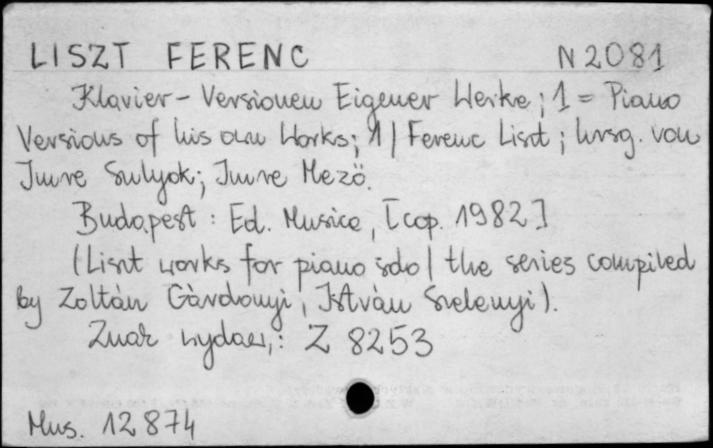 LISZT FERENC N 2081
Klavier - Versionen Eigener Werke ; 1 = Piano
Versions of his own Works ; 1 / Ferenc Liszt ; hrsg. von
Imre Sulyok ; Imre Mezö.
Budapest : Ed. Musica, [cop. 1982]
(Liszt works for piano solo / the series compiled
by Zoltán Gàrdonyi, István Szelenyi).
Znak wydaw.: Z 8253
Mus. 12874